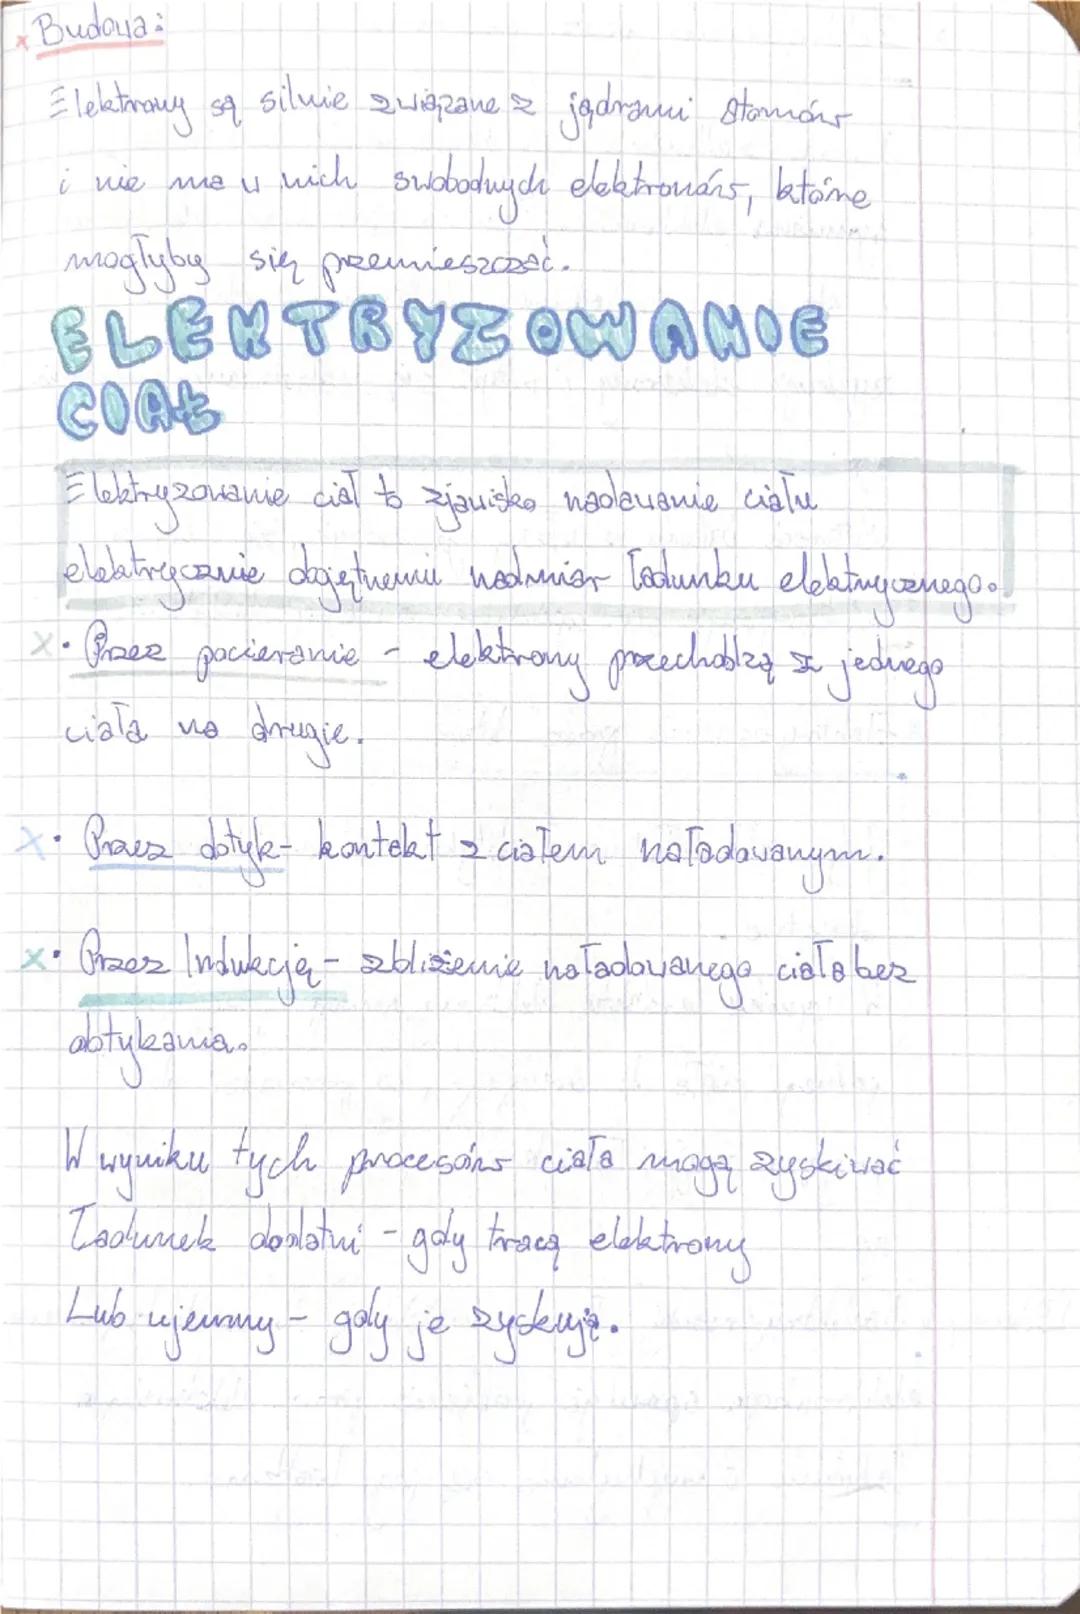 x Budowa:
Elektrony są silnie związane z jądrami atomów
i nie ma w nich swobodnych elektronów, które
mogłyby się przemieszczać.
ELEKTRYZOWANIE
CIAŁ
Elektryzowanie ciał to zjawisko nadawanie ciału
elektrycznie obojętnemu nadmiar ładunku elektrycznego.
x • Przez pocieranie - elektrony przechodzą z jednego
ciała na drugie.
x • Przez dotyk - kontakt z ciałem naładowanym.
x • Przez Indukcję - zbliżenie naładowanego ciała bez
dotykania.
W wyniku tych procesów ciała mogą zyskiwać
Ładunek dodatni - gdy tracą elektrony
Lub ujemny - gdy je zyskują.